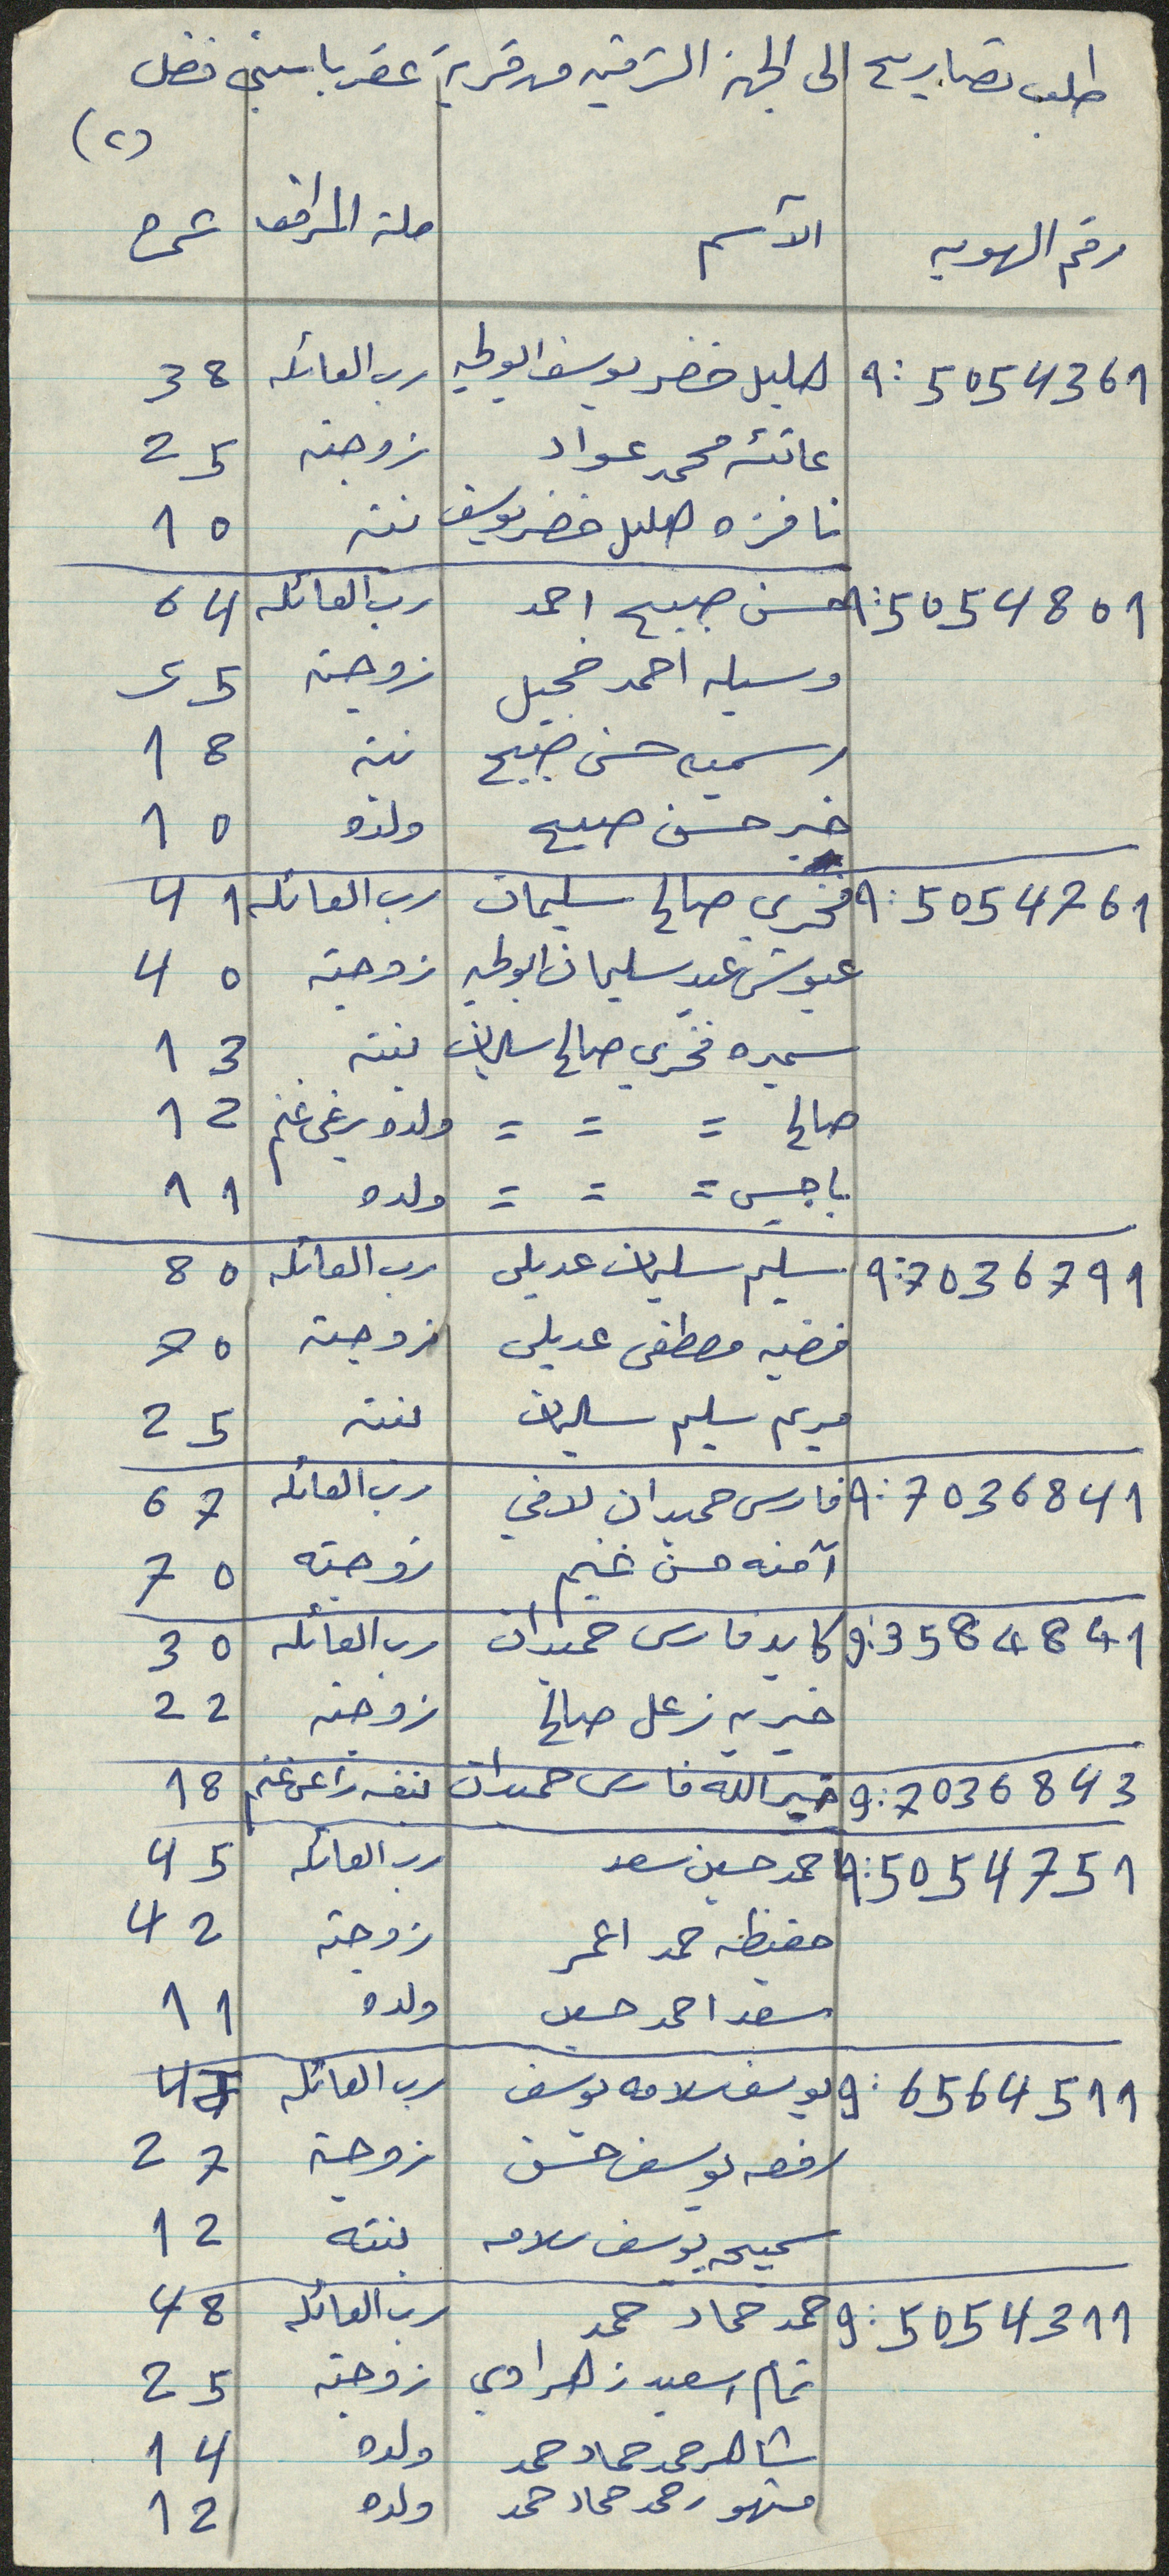 طلب تصاريح الى الجهه الشرقيه من قرية عقربا سبتي فضل
(٢)
رقم الهويه الآسم صلة المرافق عمره
9:5054361 هليل خضر يوسف ابوطيه رب العائله 38
عائشه محمد عواد زوجته 25
نافزه هليل خضر يوسف بنته 10
9:5054801 حسن صبيح احمد رب العائله 64
وسيله احمد زوجته 55
رسميه حسن صبيح بنته 18
خير حسن صبيح ولده 10
9:5054761 فخري صالح سليمان رب العائله 41
عيوش عيد سليمان ابوطيه زوجته 40
سميره فخري صالح سليمان بنته 13
صالح = = = ولده يرعى غنم 12
باجس = = = ولده 11
9:7036791 سليم سليمان عديلي رب العائله 80
فضيه مصطفى عديلي زوجته 70
مريم سليم سليمان بنته 25
9:7036841 فارس حميدان لافي رب العائله 67
آمنه حسن غنيم زوجته 70
9:3584841 كايد فارس حميدان رب العائله 30
خيريه زعل صالح زوجته 22
9:7036843 خيرالله فارس حميدان بنفسه راعى غنم 18
9:5054751 احمد حسين سعد رب العائله 45
حفيظه حمد اعمر زوجته 42
سعد احمد حسين ولده 11
9:6564511 يوسف سلامه يوسف رب العائله 45
رفعه يوسف حسن زوجته 27
سميحه يوسف سلامه بنته 12
9:5054311 حمد حماد حمد رب العائله 48
تمام اسعيد زهراوي زوجته 25
شاهر حمد حماد حمد ولده 14
مشهور حمد حماد حمد ولده 12